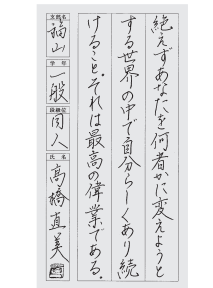 絶えずあなたを何者かに変えようと
する世界の中で自分らしくあり続
けること。それは最高の偉業である。
支部名
福山
学年
一般
段級位
同人
氏名
高橋直美